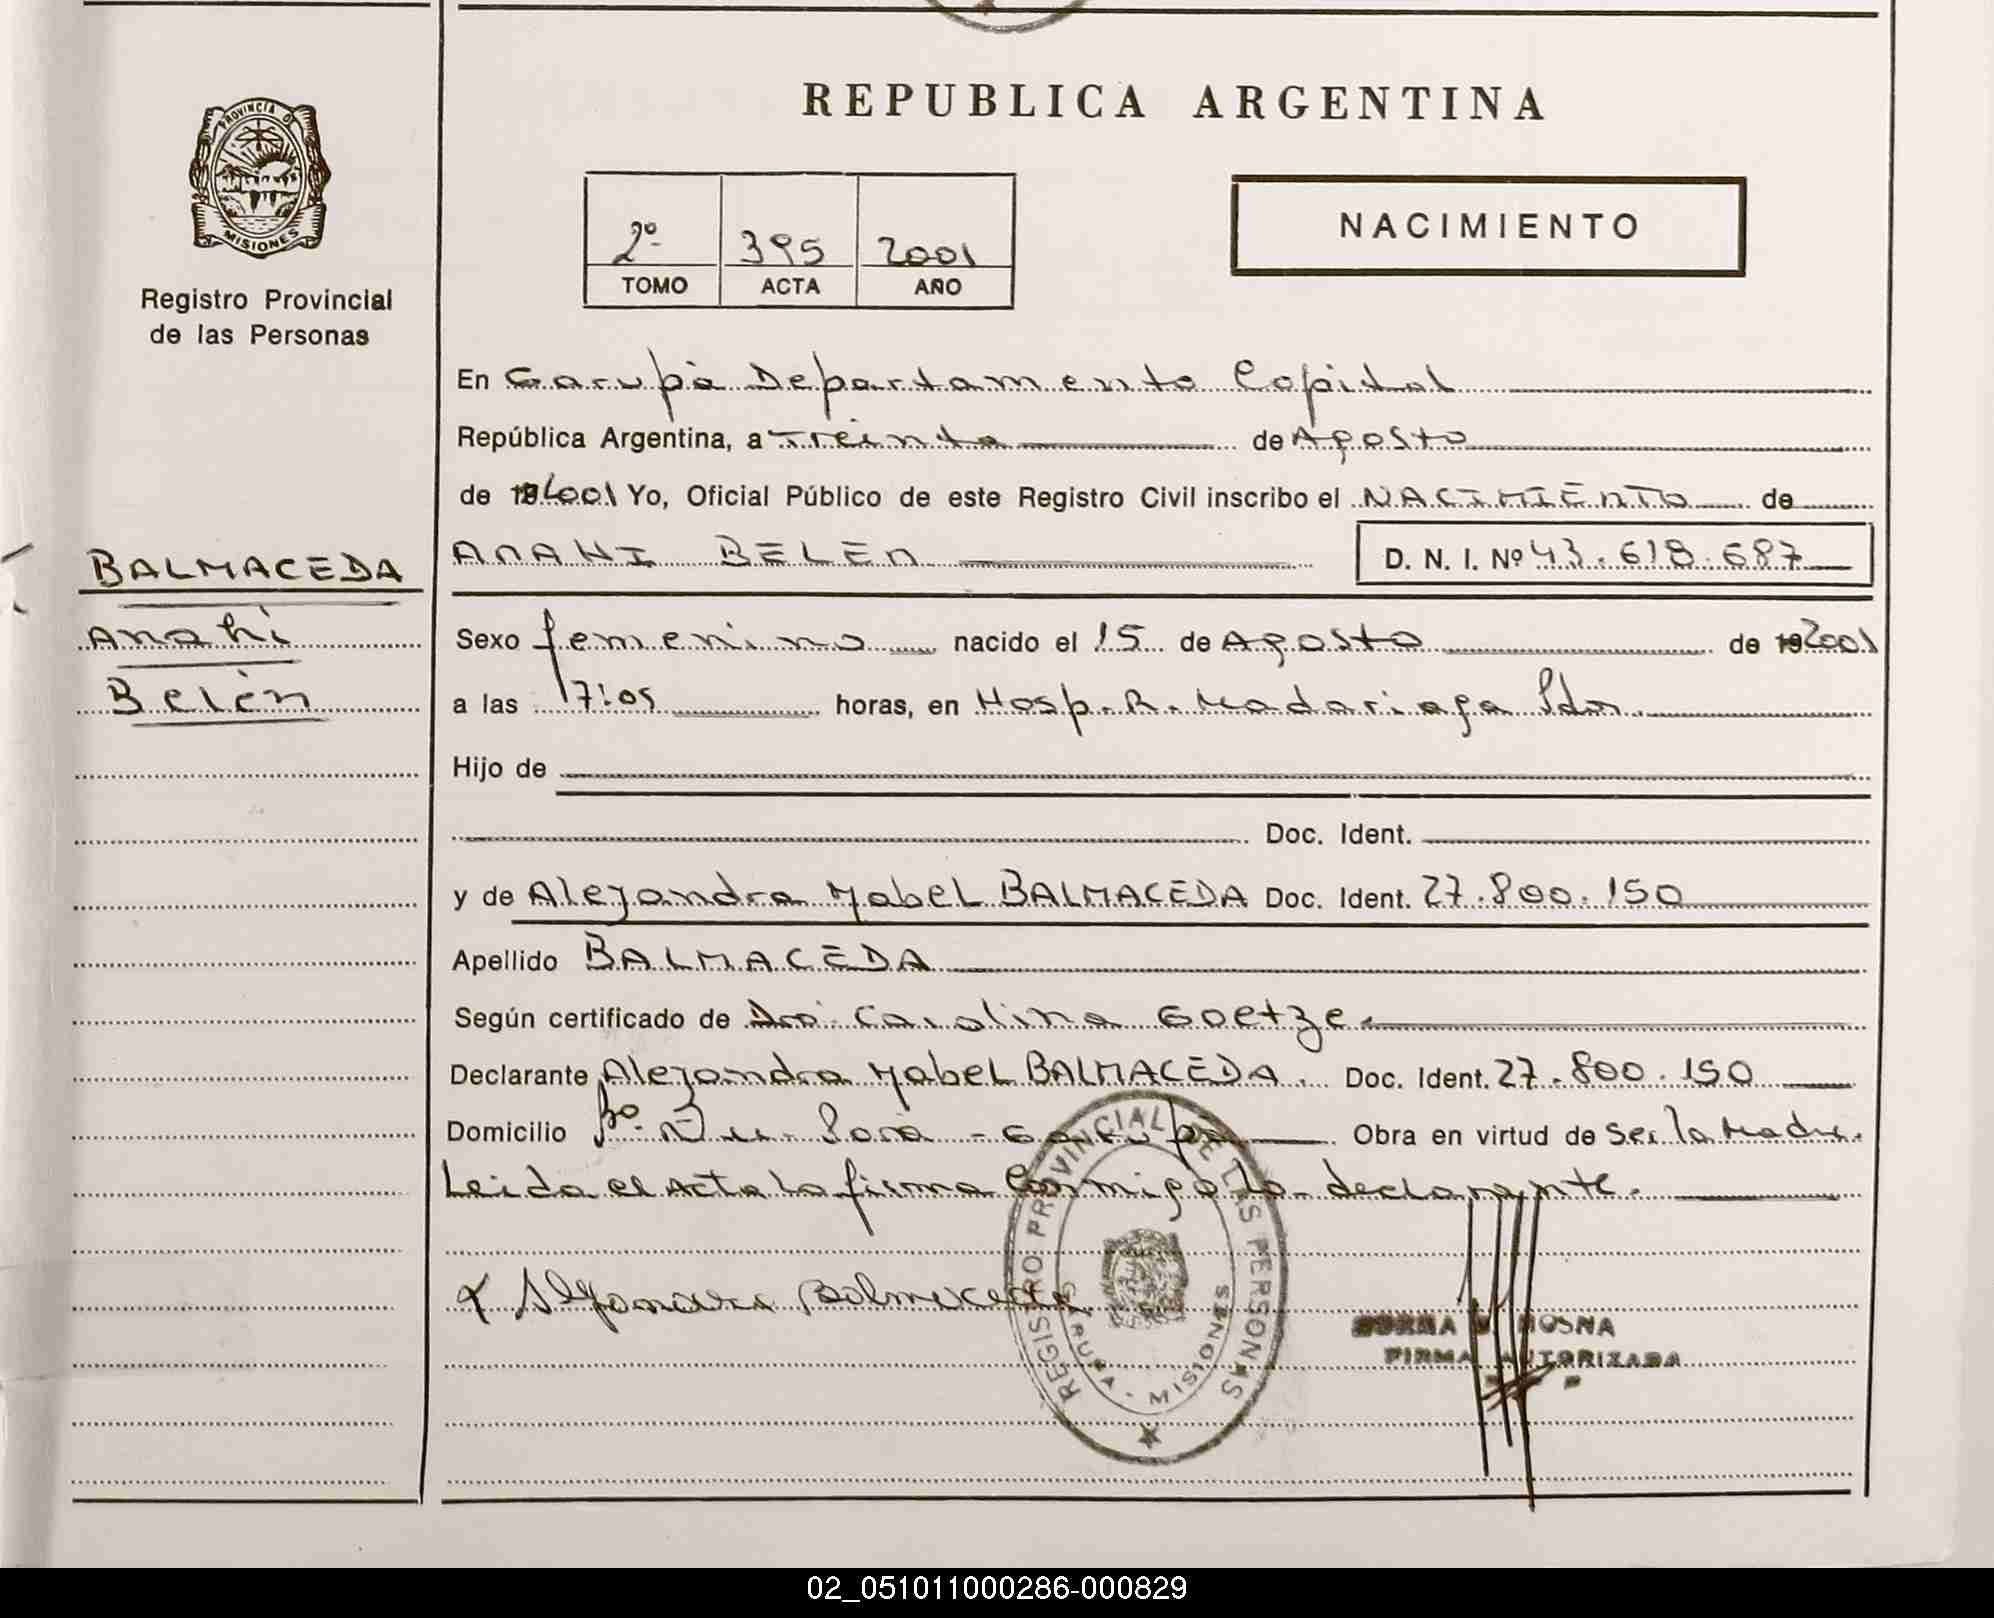 REPUBLICA ARGENTINA
PROVINCIA D
MISIONES
Registro Provincial
de las Personas
2º 395 2001
TOMO ACTA AÑO
NACIMIENTO
En Garupà Departamento Capital
República Argentina, a Treinta de Agosto
de 2001 Yo, Oficial Público de este Registro Civil inscribo el NACIMIENTO de
BALMACEDA
Anahi
Belén
ANAHI BELEN D. N. I. Nº 43.618.687
Sexo femenino nacido el 15 de Agosto de 192001
a las 17:05 horas, en Hosp. R. Madariaga Pdas.
Hijo de
Doc. Ident.
y de Alejandra Mabel BALMACEDA Doc. Ident. 27.800.150
Apellido BALMACEDA
Según certificado de Dra. Carolina Goetze.
Declarante Alejandra Mabel BALMACEDA. Doc. Ident. 27.800.150
Domicilio Bº Porà - Garupà Obra en virtud de Ser la Madre.
Leida el Acta la firma Conmigo la declarante.
Balmaceda
REGISTRO PROVINCIAL DE LAS PERSONAS
GARUPA - MISIONES
NORMA HOSNA
FIRMA AUTORIZADA
02_051011000286-000829